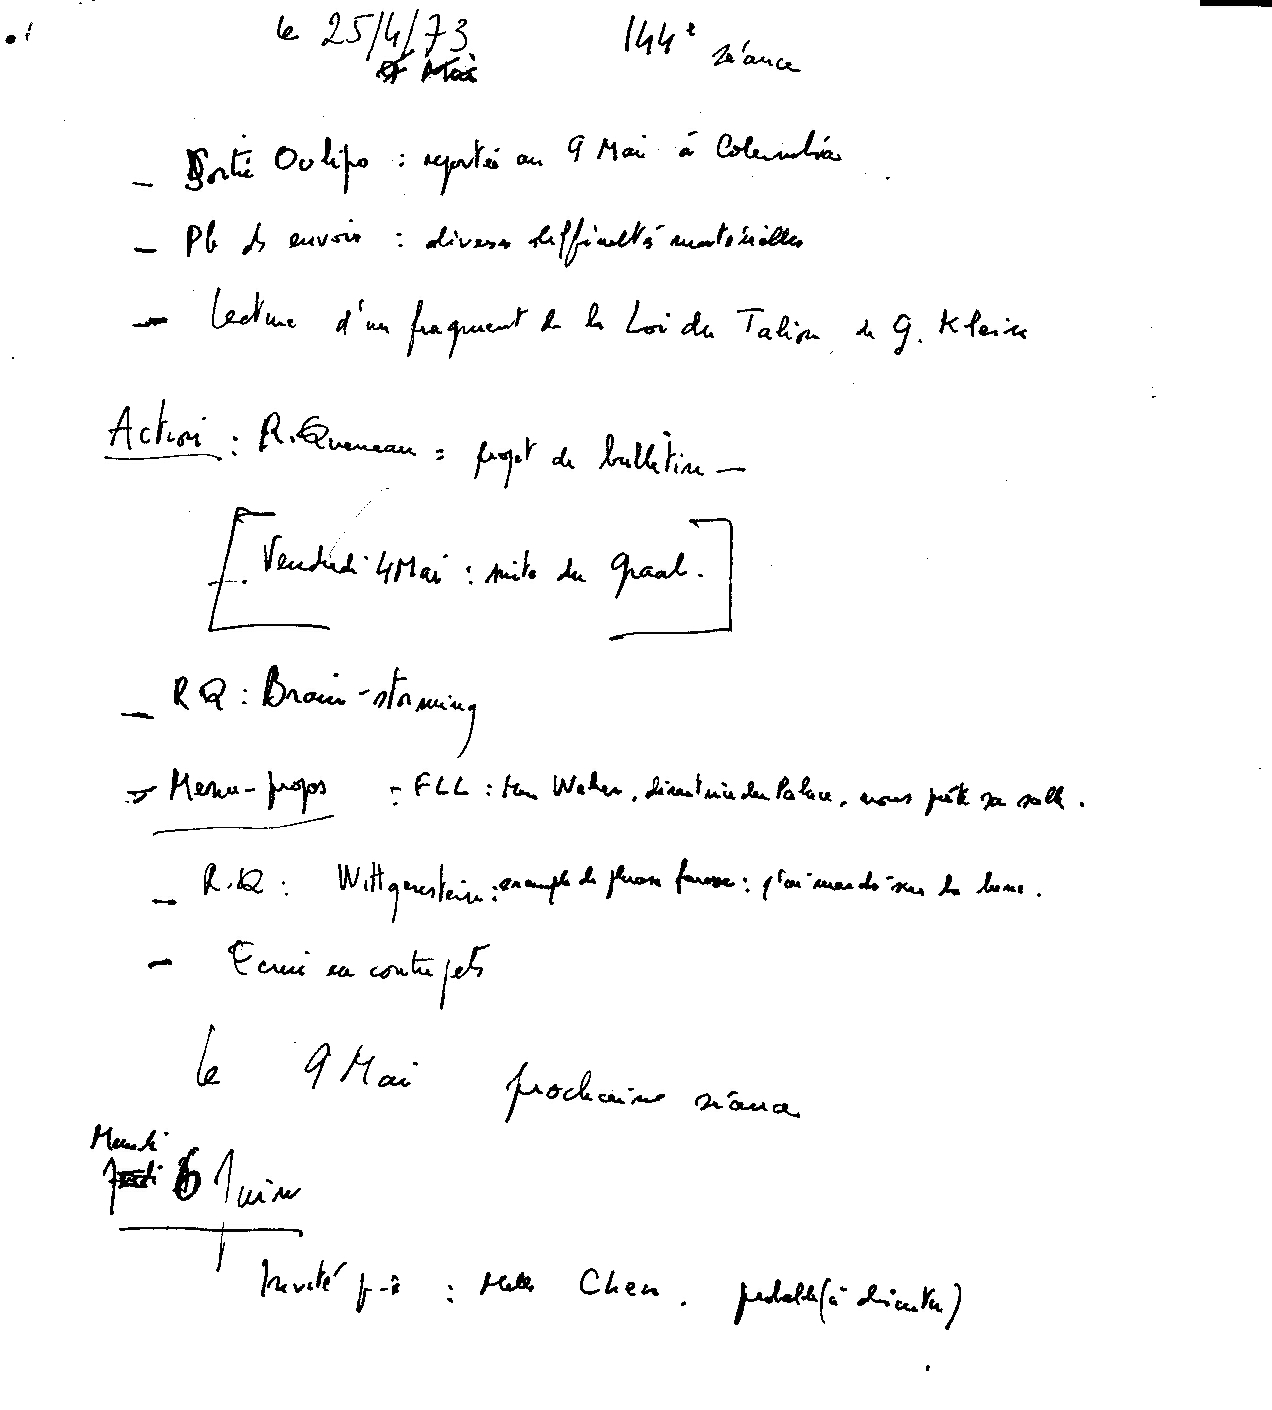 le 25/4/73 144e séance
— Sortie Oulipo : reportée au 9 Mai à Columbia
— Pb ds envois : diverses difficultés matérielles
— Lecture d'un fragment de la Loi du Talion de G. Klein
Action : R. Queneau = projet de bulletin —
Vendredi 4 Mai : suite du graal.
— RQ : Brain-storming
— Menu-propos - FLL : directrice du Palace, nous prête sa salle.
— R.Q : Wittgenstein : exemple de phrase fausse : j'ai marché sur la lune.
— Ecrire en contrepets
le 9 Mai prochaine séance
6 Juin
Invité p-ê : Melle Chen. probable (à discuter)